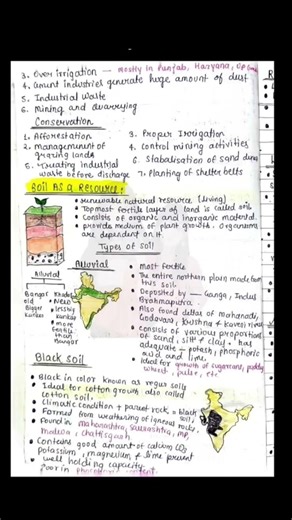 3. Over irrigation — Mostly in Punjab, Haryana, UP
4. cement industries generate huge amount of dust
5. Industrial waste
6. Mining and Quarrying
Conservation
1. Afforestation
2. management of grazing lands
3. Proper Irrigation
4. control mining activities
5. Treating industrial waste before discharge
6. Stabalisation of sand dunes
7. Planting of shelter belts
Soil As a Resource:
• renewable natural resource (living)
• Topmost fertile layer of land is called soil
• Consists of organic and inorganic material.
• provide medium of plant growth. Organisms are dependent on it.
Types of soil
Alluvial
Alluvial
Bangar
old
Bigger
Kankar
Khadar
New
lessly
kankar
more fertile than Bangar
• most fertile
• The entire northern plain made from this soil.
• Deposited by — Ganga, Indus Brahmaputra
• Also found deltas of mahanadi, Godavari, Krishna & kaveri rivers
• consists of various proportions of sand, silt & clay. has adequate - potash, phosphoric acid and lime.
• Ideal for growth of sugarcane, paddy, wheat, pulse, etc
Black soil
• Black in color known as regur soils
• Ideal for cotton growth also called cotton soil.
• Climatic condition + parent rock = black
• Formed from weathering of igneous rocks.
• Found in maharashtra, saurashtra, MP, malwa, chattisgarh
• Contains good amount of calcium CO3 potassium, magnesium & lime present
• well holding capacity
Poor in content.